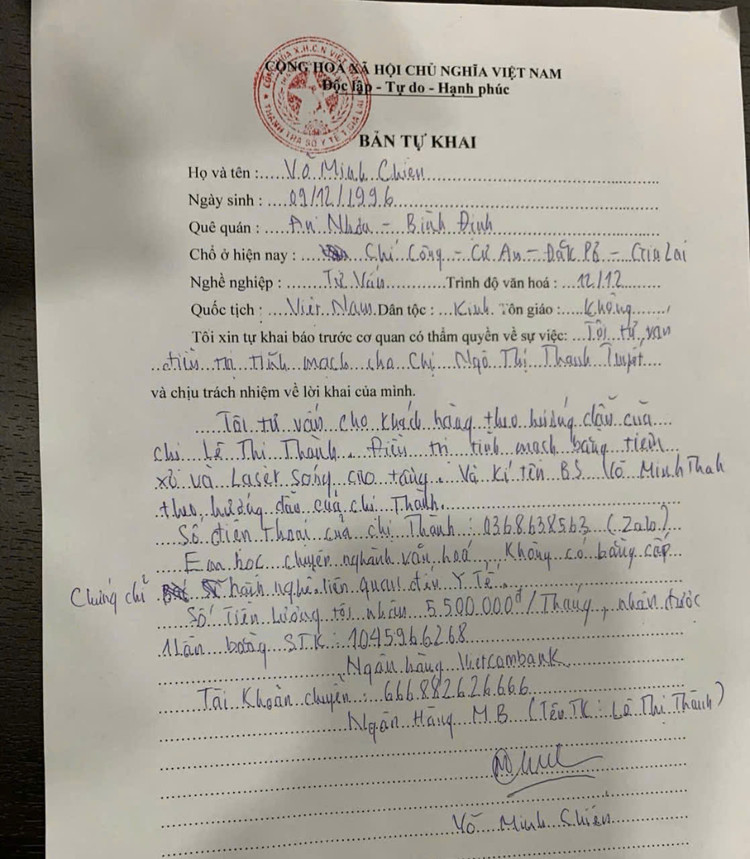 CỘNG HOÀ XÃ HỘI CHỦ NGHĨA VIỆT NAM
Độc lập - Tự do - Hạnh phúc
THANH TRA SỞ Y TẾ T GIA LAI
BẢN TỰ KHAI
Họ và tên : Võ Minh Chiến
Ngày sinh : 09/12/1996
Quê quán : An Nhơn - Bình Định
Chỗ ở hiện nay : Chí Công - Cư An - Đăk Pơ - Gia Lai
Nghề nghiệp : Tư Vấn Trình độ văn hoá : 12/12
Quốc tịch : Việt Nam Dân tộc : Kinh Tôn giáo : Không
Tôi xin tự khai báo trước cơ quan có thẩm quyền về sự việc: Tôi tư vấn
điều trị tĩnh mạch cho Chị Ngô Thị Thanh Tuyệt
và chịu trách nhiệm về lời khai của mình.
Tôi tư vấn cho khách hàng theo hướng dẫn của
chị Lê Thị Thành. Điều trị tĩnh mạch bằng tiêm
xơ và Laser sóng cao tầng. Và kí tên BS Võ Minh Thah
theo hướng dẫn của chị Thành.
Số điện thoại của chị Thành : 0368638563 (Zalo)
Em học chuyên nghành văn hoá, Không có bằng cấp
Chứng chỉ hành nghề liên quan đến Y Tế.
Số tiền lương tôi nhận 5.500.000đ/Tháng, nhận được
1 lần bằng STK: 1045966268
Ngân hàng Vietcombank
Tài Khoản chuyển : 666882626666
Ngân Hàng M.B (Tên TK: Lê Thị Thành)
Võ Minh Chiến